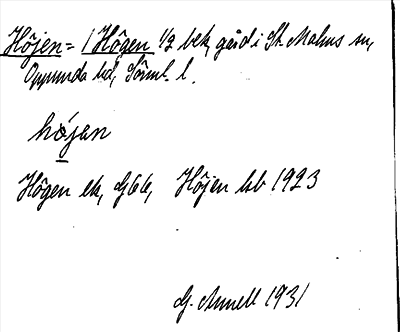 Höjen = / Högen 1/2 bek, gård i St. Malms sn,
Oppunda hd, Sörml. l.
höjen
Högen ek, G66, Höjen kb 1923
G. Annell 1931